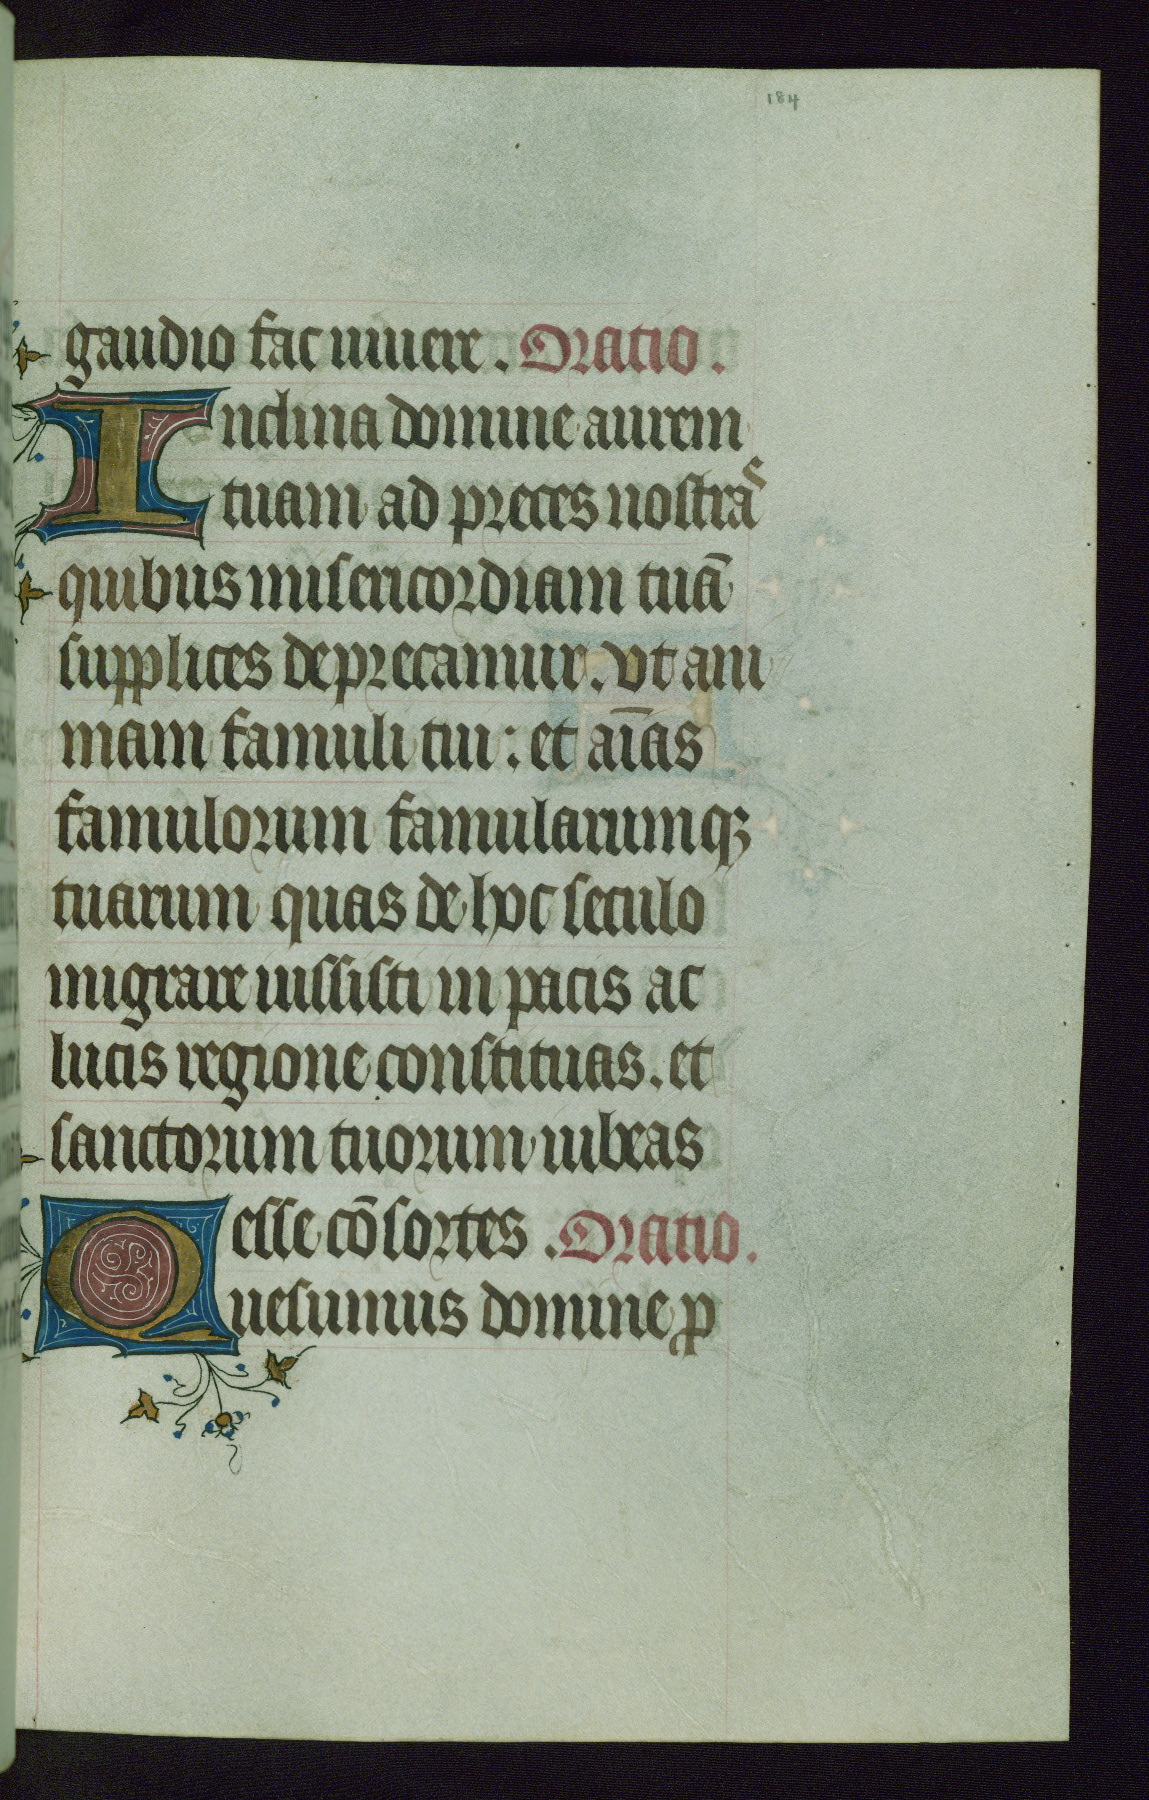 184
gaudio fac uiuere. Oratio.
Inclina domine aurem
tuam ad preces nostras
quibus misericordiam tuā
supplices deprecamur. vt ani
mam famuli tui: et aīas
famulorum famularumqꝫ
tuarum quas de hoc seculo
migrare iussisti in pacis ac
lucis regione constituas. et
sanctorum tuorum iubeas
esse cōsortes. Oratio.
Quesumus domine ꝓ